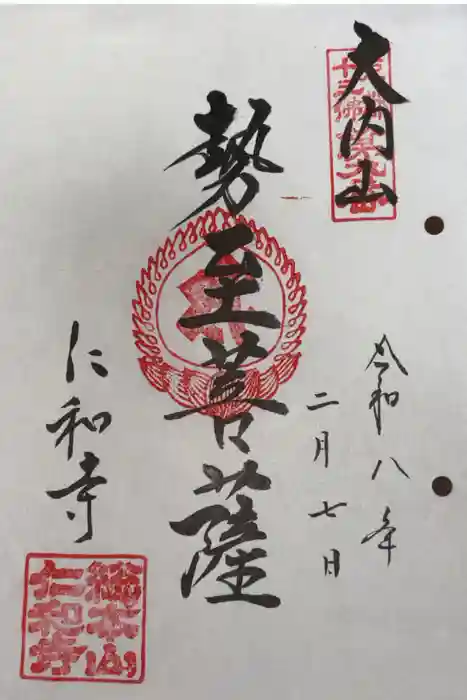 大内山
令和八年
二月七日
勢至菩薩
仁和寺
総本山
仁和寺